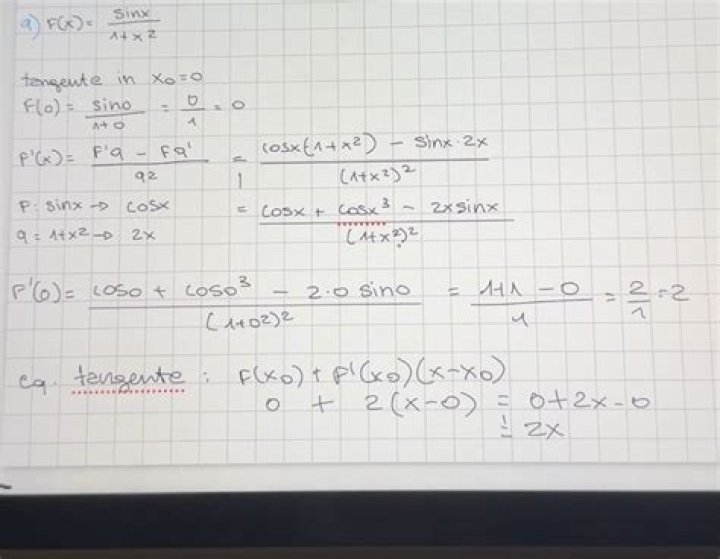 a) F(x) = sinx / 1+x²
tangente in x₀=0
F(0) = sin0 / 1+0 = 0/1 = 0
F'(x) = F'q - Fq' / q2 = cosx(1+x²) - sinx·2x / (1+x²)²
P: sinx → cosx
q = 1+x² → 2x
= cosx + cosx³ - 2xsinx / (1+x²)²
F'(0) = cos0 + cos0³ - 2·0 sin0 / (1+0²)² = 1+1 - 0 / 1 = 2/1 = 2
eq. tangente : F(x₀) + F'(x₀)(x-x₀)
0 + 2(x-0) = 0+2x-0
= 2x